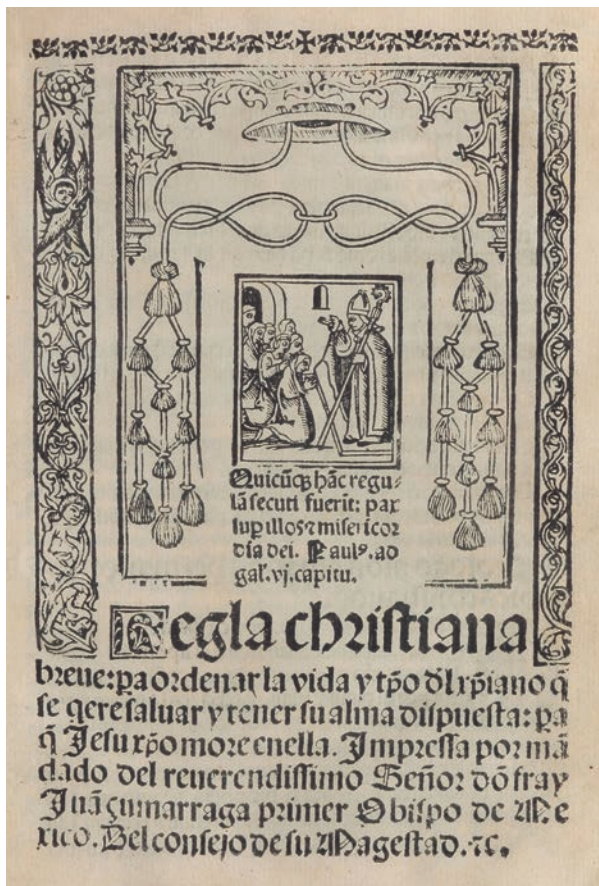 Quicũqꝫ hãc regu⸗
lã secuti fuerĩt: pax
sup illos ⁊ misericor
dia dei. Paulꝰ. ad
gal. vj. capitu.
Regla christiana
breue: pa ordenar la vida y tpõ dl xpiano q̃
se qere saluar y tener su alma dispuesta: pa
q̃ Jesu xpõ more enella. Jmpressa por mã
dado del reuerendissimo Señor dõ fray
Juã çumarraga primer Obispo de Me
xico. Del consejo de su Magestad. ⁊c.